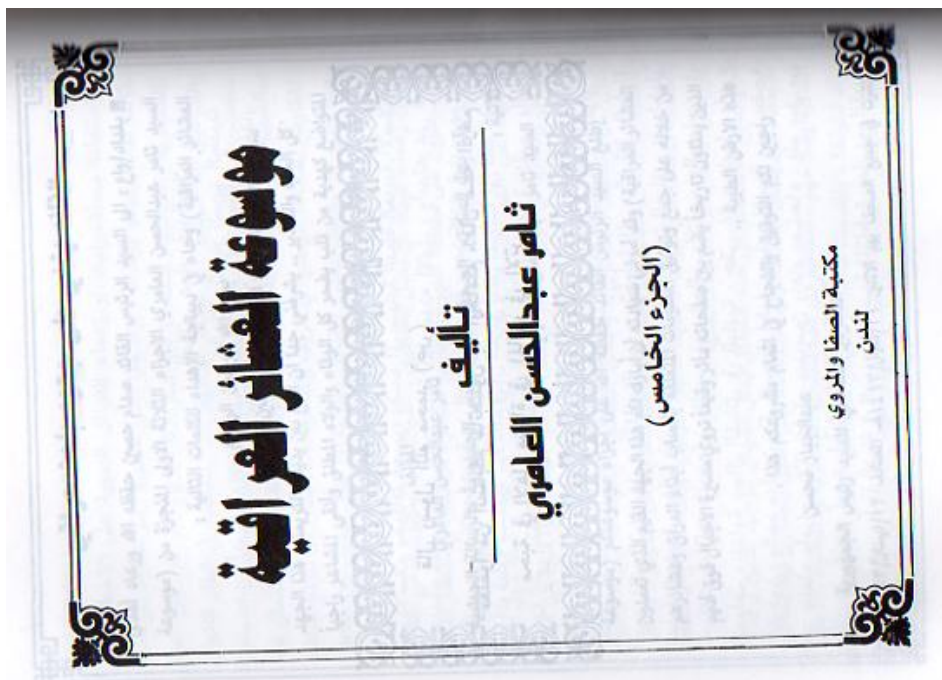 موسوعة العشائر العراقية
تأليف
ثامر عبدالحسن العامري
(الجزء الخامس)
مكتبة الصفا والمروي
لندن